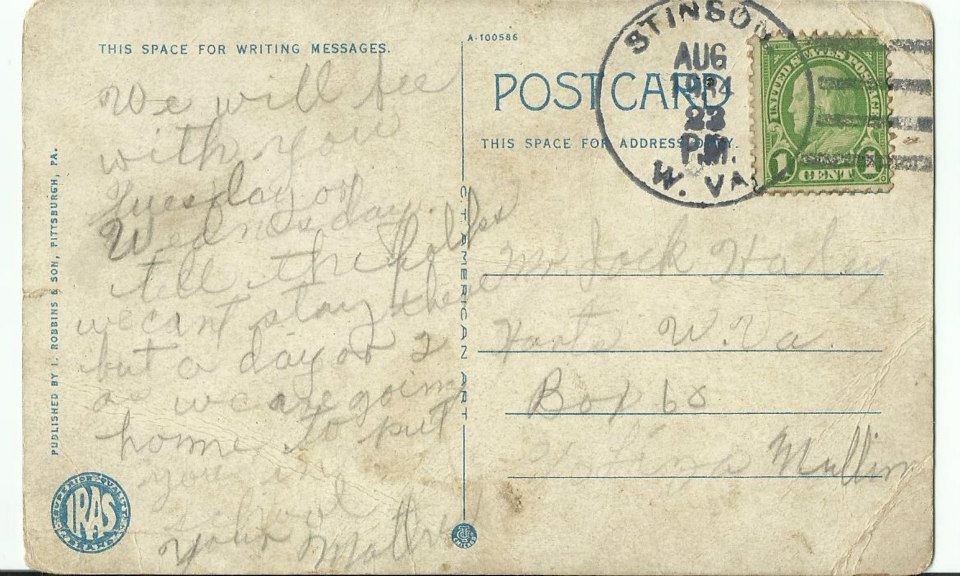 THIS SPACE FOR WRITING MESSAGES.
We will bee
with you
Tuesday or
Wednsday
tell the folkes
we cant stay there
but a day or 2
as we are going
home to put
you in
school
your Mother
PUBLISHED BY I. ROBBINS & SON, PITTSBURGH, PA.
IRAS
A-100586
POST CARD
THIS SPACE FOR ADDRESS ONLY.
C.T. AMERICAN ART
STINSON
AUG
23
P.M.
W. VA.
UNITED STATES POSTAGE
1 CENT 1
Mr Jack
W. Va.
Box 68
Mullin